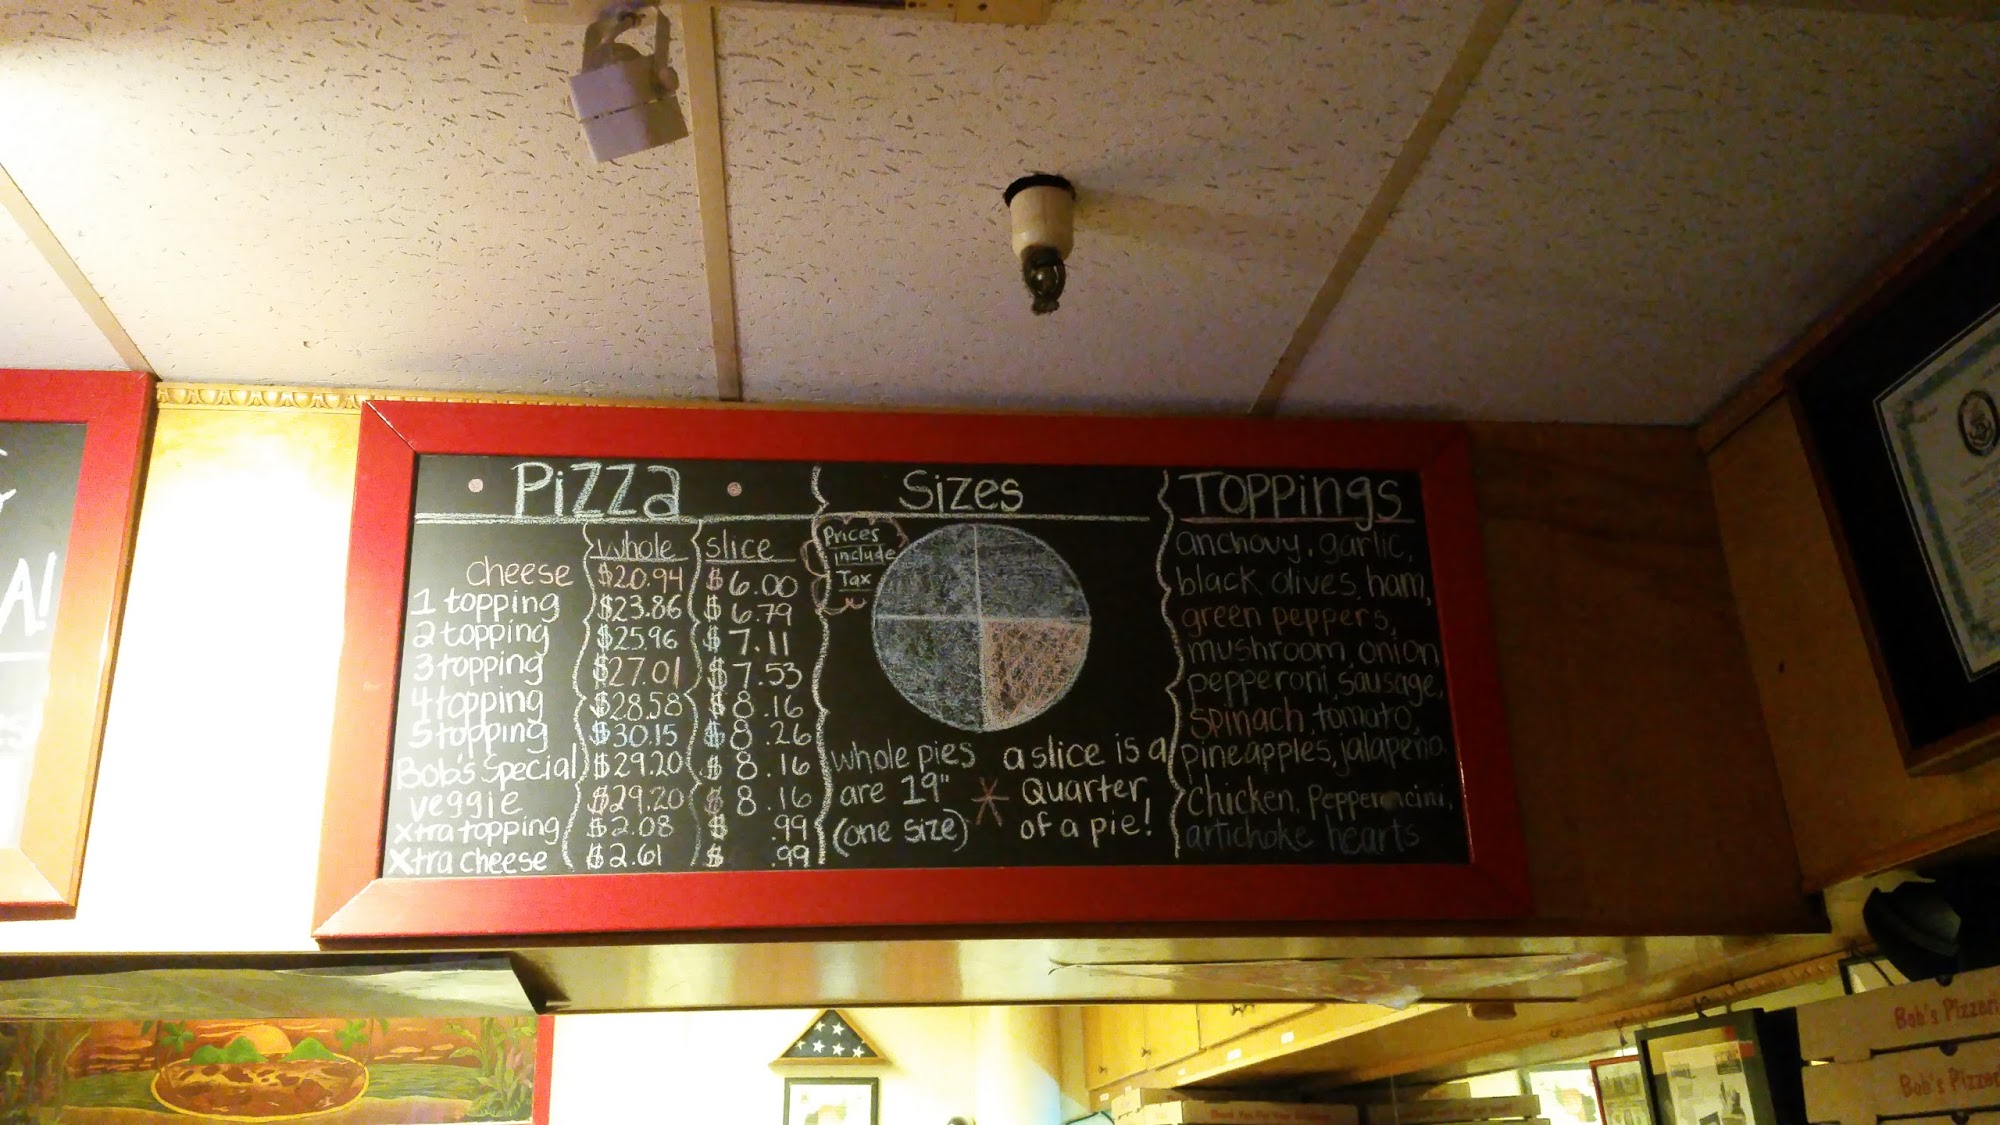 Pizza
Whole slice
cheese $20.94 $6.00
1 topping $23.86 $6.79
2 topping $25.96 $7.11
3 topping $27.01 $7.53
4 topping $28.58 $8.16
5 topping $30.15 $8.26
Bob's Special $29.20 $8.16
veggie $29.20 $8.16
Xtra topping $2.08 $.99
Xtra cheese $2.61 $.99
Sizes
Prices
include
Tax
whole pies
are 19"
(one size)
a slice is a
Quarter
of a pie!
Toppings
anchovy, garlic,
black olives, ham,
green peppers,
mushroom, onion
pepperoni, sausage,
spinach, tomato,
pineapples, jalapeño.
chicken, Pepperoncini,
artichoke hearts
A!
Bob's Pizzeri
Bob's Pizzeri